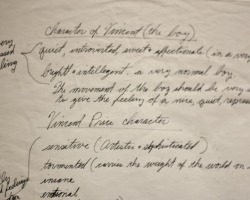 Character of Vincent (the boy)
quiet, introverted, sweet + affectionate (in a very
bright + intellegent, a very normal boy
The movement of the boy should be very
to give the feeling of a nice, quiet, repress
Vincent Price character
sensative (Artistic + sophisticated)
tormented (carries the weight of the world on
insane